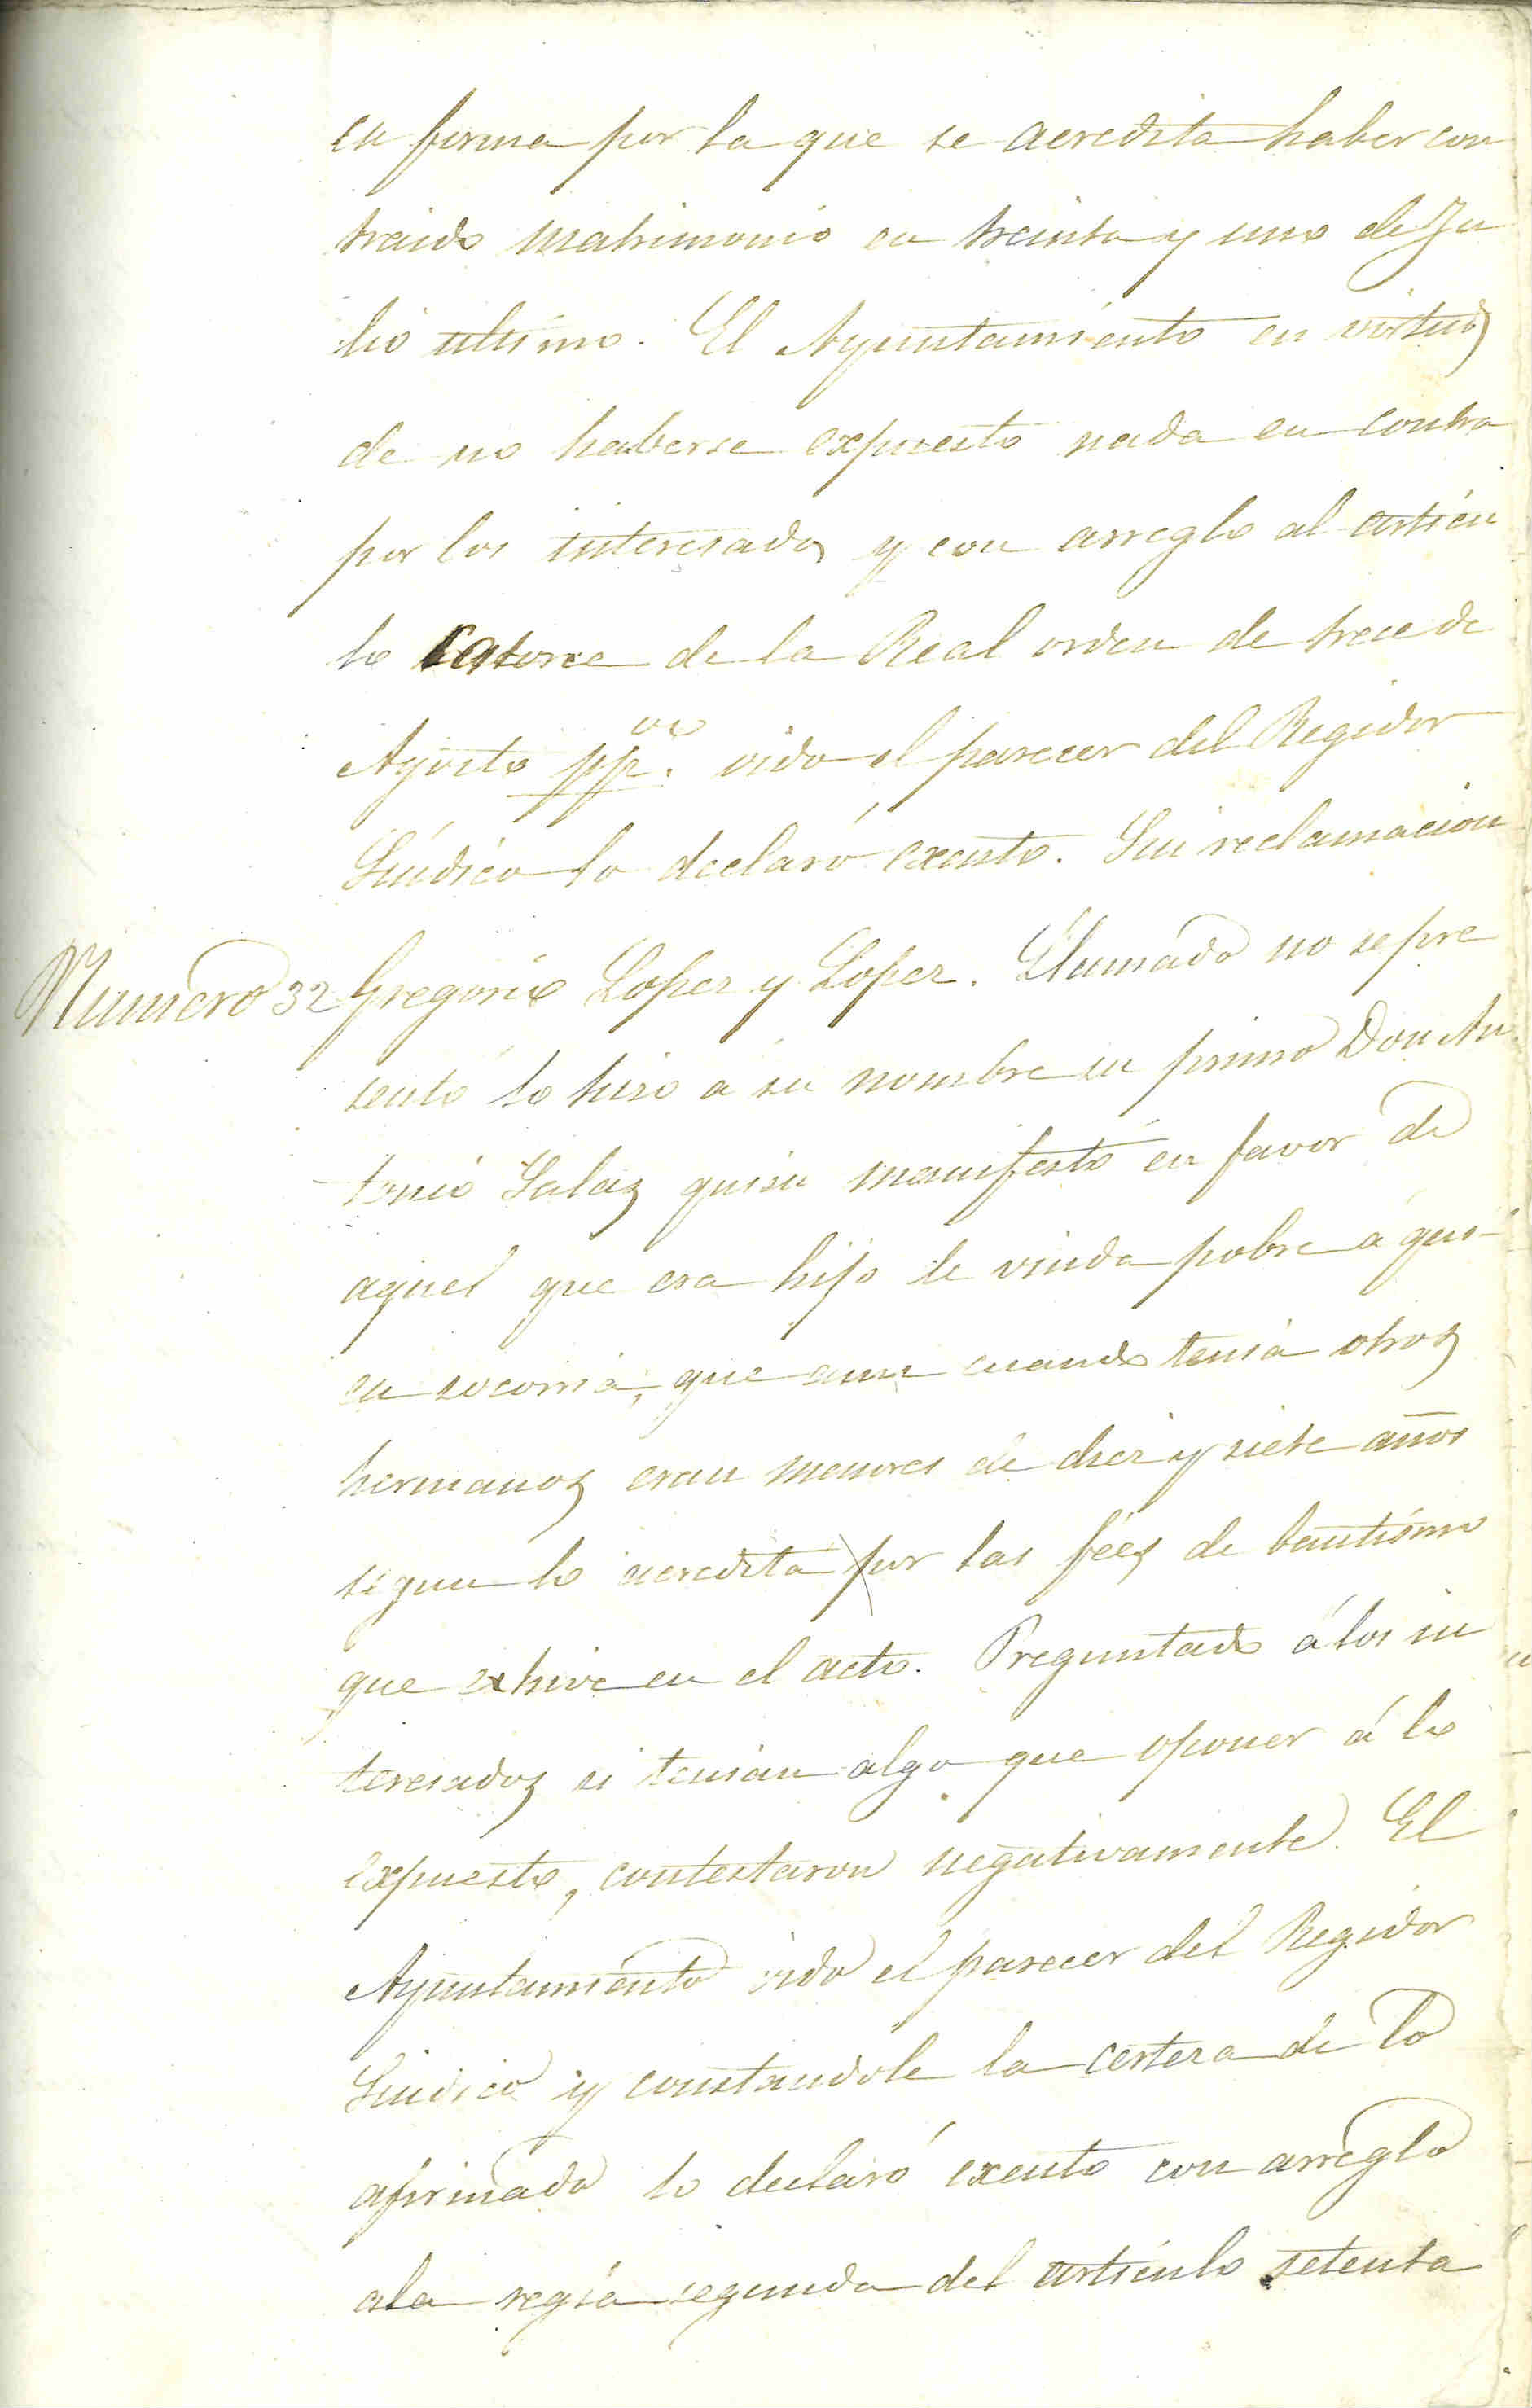 en forma por la que se acredita haber con
traido matrimonio en treinta y uno de Ju
lio ultimo. El Ayuntamiento en virtud
de no haberse expuesto nada en contra
por los interesados y con arreglo al articu
lo catorce de la Real orden de trece de
Agosto pp.º oido el parecer del Regidor
Síndico lo declaró exento. Sin reclamacion
Numero 32 Gregorio Lopez y Lopez. Llamado no se pre
sentó lo hizo a su nombre su primo Don An
tonio Salaz quien manifestó en favor de
aquel que era hijo de viuda pobre a qui-
en socorria, que aun cuando tenia otros
hermanos eran menores de diez y siete años
segun lo acredita por las fées de bautismo
que exhive en el acto. Preguntado á los in
teresados si tenian algo que oponer á lo
expuesto, contestaron negativamente. El
Ayuntamiento oido el parecer del Regidor
Sindico y constandole la certeza de lo
afirmado lo declaró exento con arreglo
a la regla segunda del articulo setenta